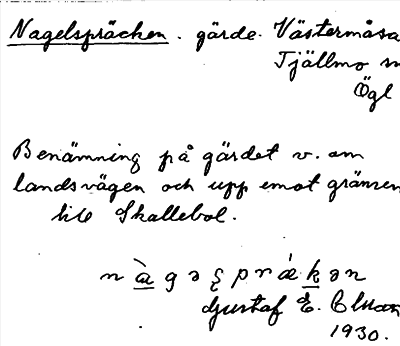 Nagelspräcken. gärde. Västermåsa
Tjällmo sn
Ögl
Benämning på gärdet v. om
landsvägen och upp emot gränsen
till Skallebol.
Gustaf E.
1930.